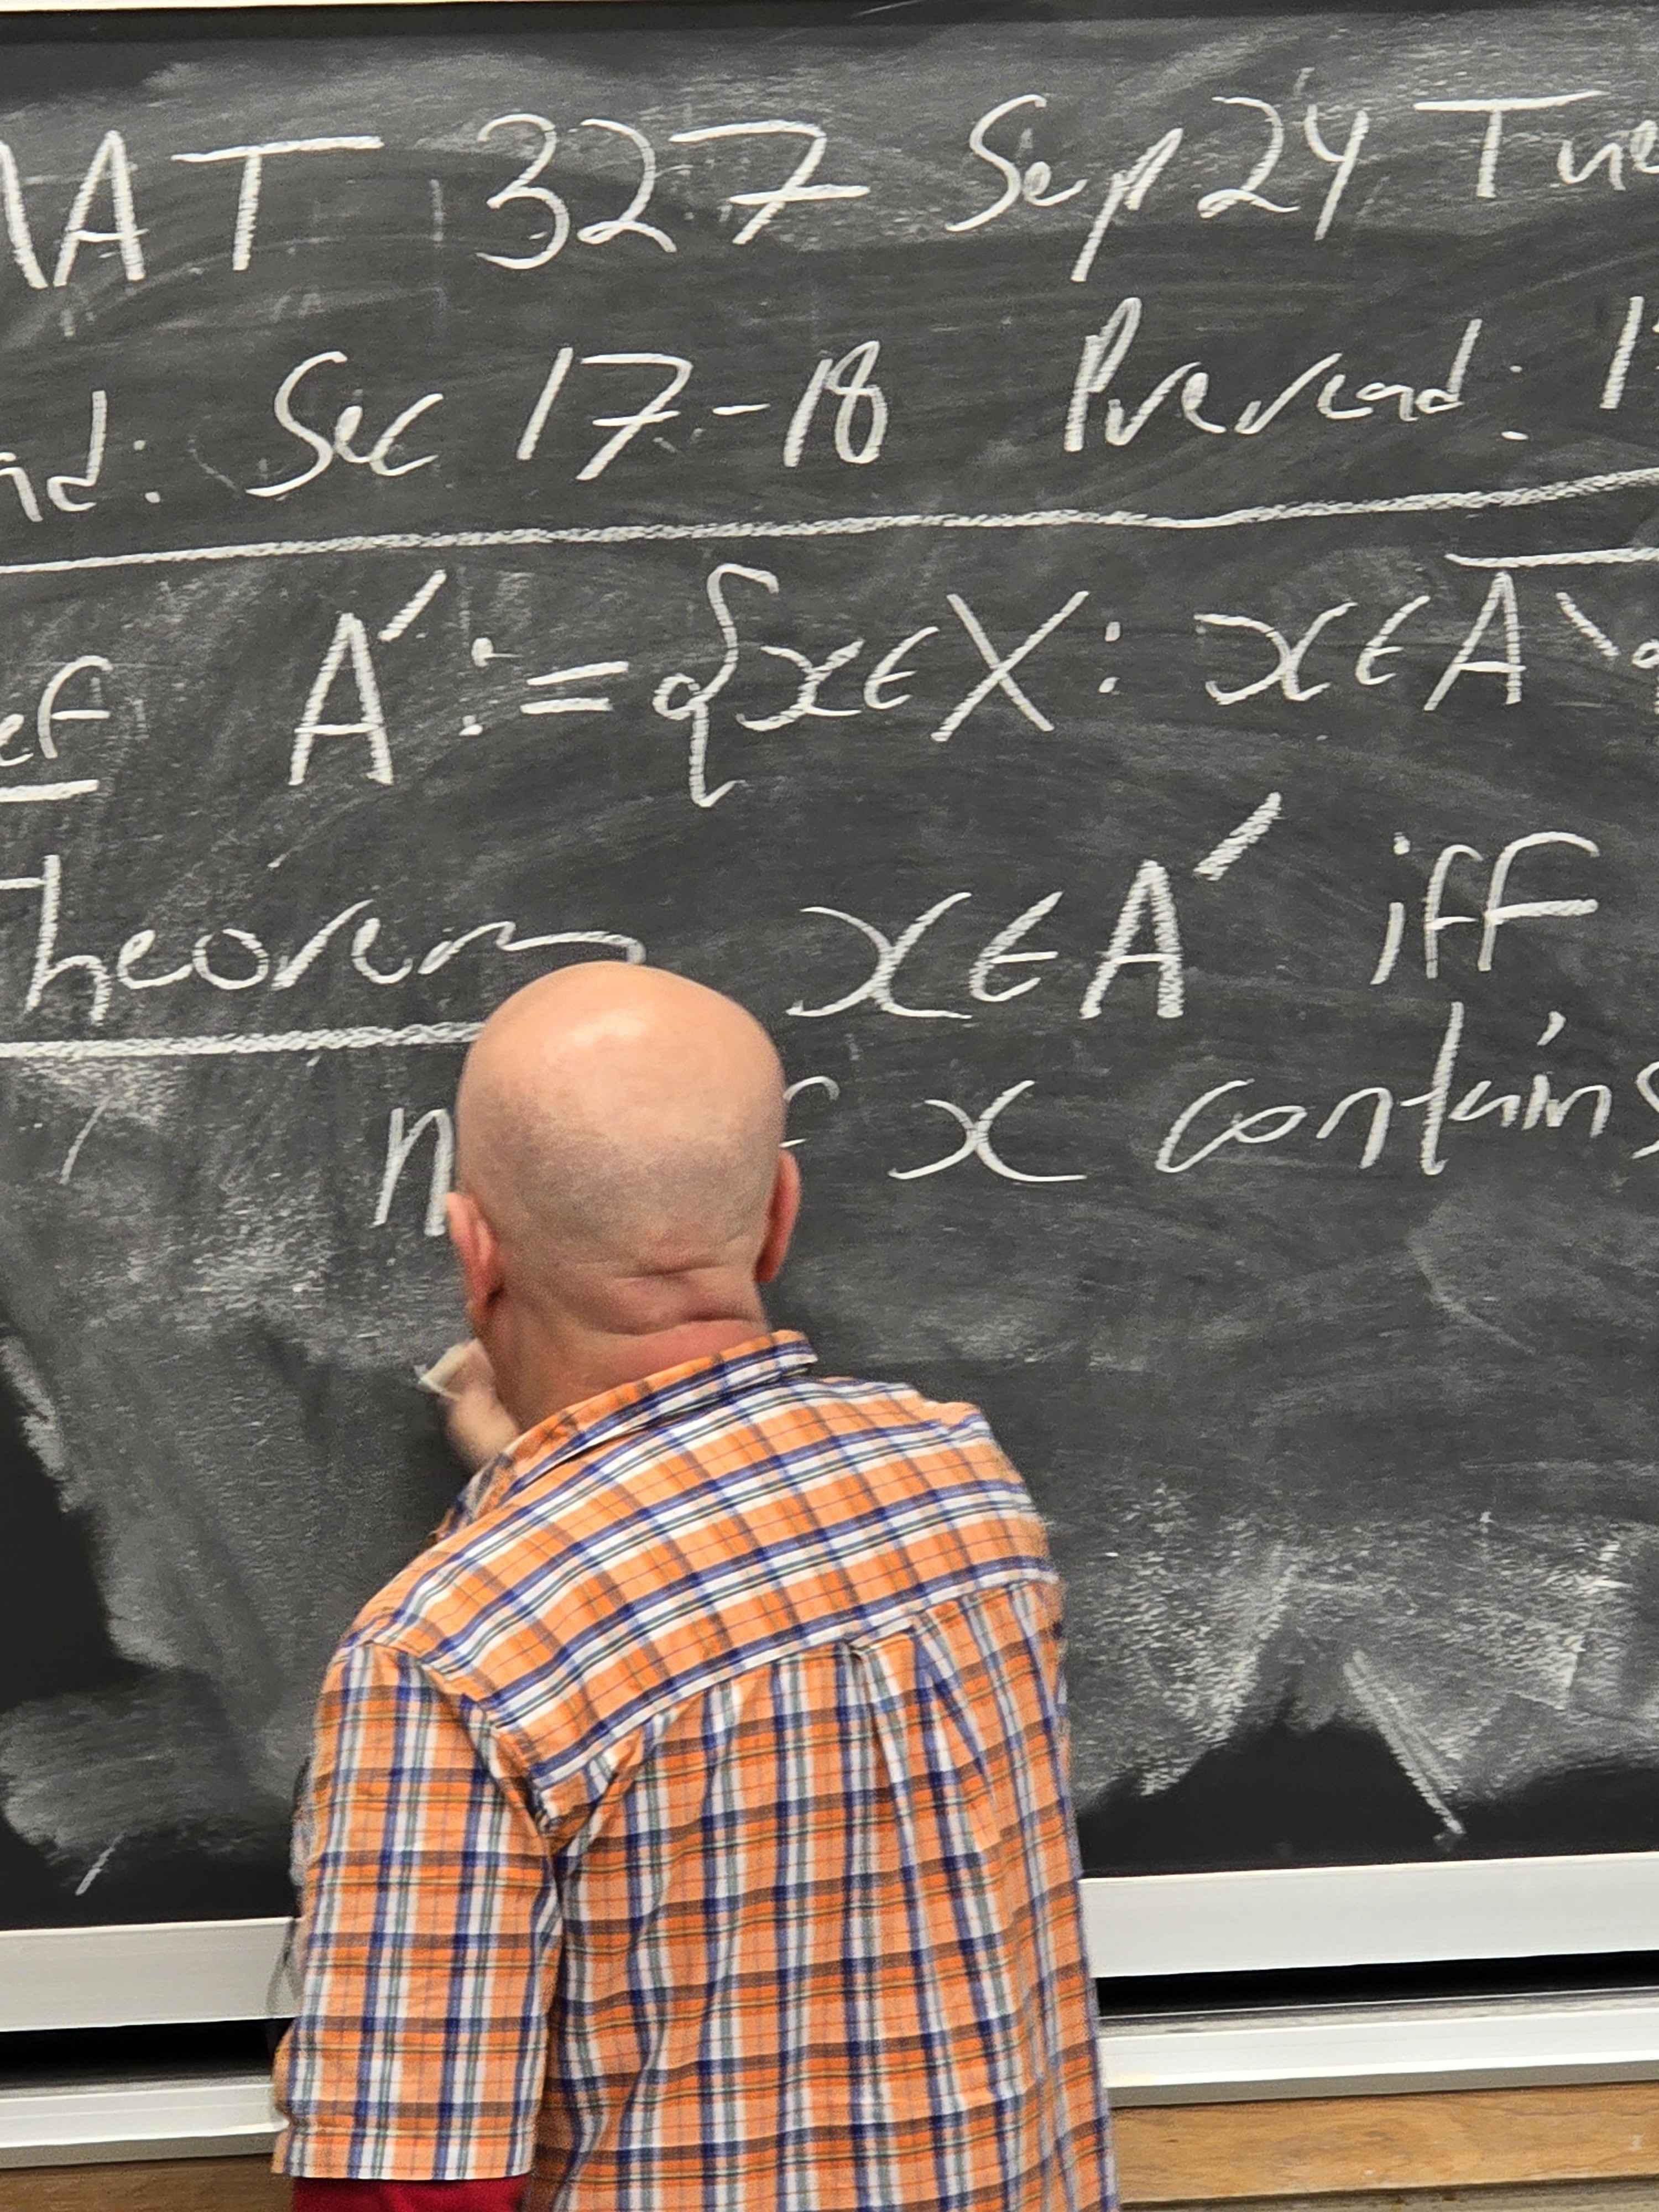 MAT 327 Sep 24 Tue
ad: Sec 17-18 Preread: 1
ef A' := {x∈X : x∈A̅\̅
Theorem x∈A' iff
x contains